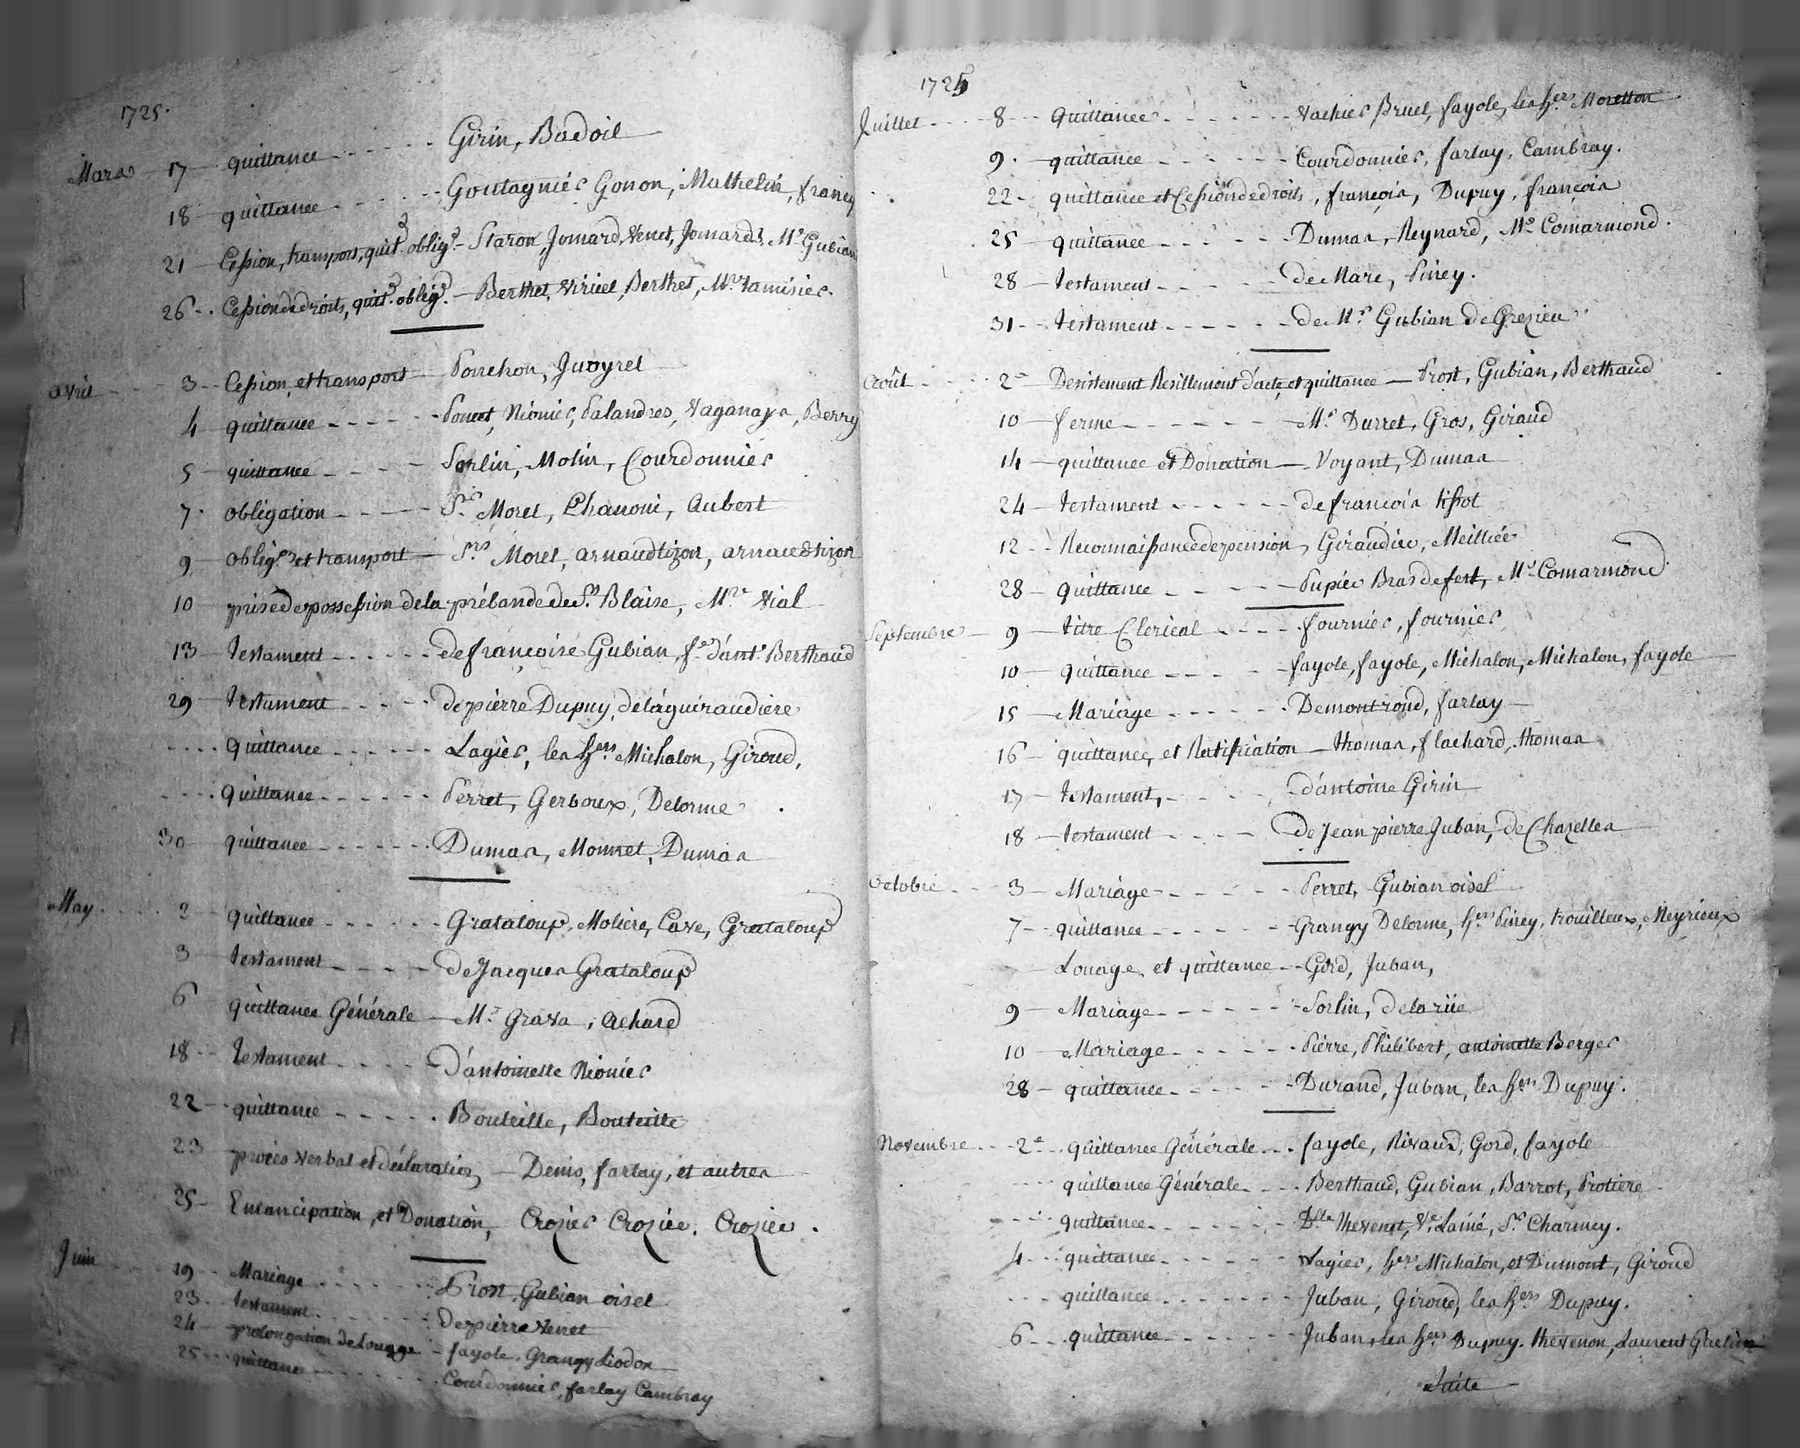 1725.
Mars 17 quittance Girin, Badoil
18 quittance Goutagnier Gonon, Mathelin, francy
21 Cession, transport, quit.e oblig.e Staron Jomard, Venet, Jomard, Mr Gubian
26 Cession de droits, quit.e oblig.e Berthet, Viricel, Berthet, Mre tamisier
avril 3 Cession et transport Ponchon, Juvyret
4 quittance Poncet, Nionier, Palandres, Vaganays, Berry
5 quittance Sorlin, Molin, Courdonnier
7 obligation Sr. Moret, Chanoni, Aubert
9 oblig.on et transport Srs Moret, arnaudtizon, arnaudtizon
10 prise de possession de la prébande de St Blaise, Mre Vial
13 testament de françoise Gubian, fe d'ant.e Berthaud
29 testament de pierre Dupuy, de la guiraudiere
quittance Lagier, les hers Michalon, Giroud,
quittance Perret, Gerboux, Delorme
30 quittance Dumas, Monnet, Dumas
May 2 quittance Grataloup, Moliere, Cave, Grataloup
3 testament de Jacques Grataloup
6 quittance Générale Mr Grava, achard
18 testament d'antoinette Nionier
22 quittance Bouteille, Bouteille
23 procès verbal et déclaration, Denis, farlay, et autres
25 Emancipation, et Donation, Crozier Crozier, Crozier.
Juin 19 Mariage Prost, Gubian oisel
23 testament de pierre Venet
24 prolongation de Louage fayole, Grangy Liodon
25 quittance Courdonnier, farlay Cambray
1725
Juillet 8 quittance Vachier Bruel, fayole, les hers Moretton
9. quittance Courdonnier, farlay, Cambray.
22 quittance et Cession de droits, françois, Dupuy, françois
25 quittance Dumas, Reynard, Mr Comarmond.
28 testament de Mare, Piney.
31 testament de Mr Gubian de Grezieu
Août 2 Desistement Resillement d'acte, et quittance Prost, Gubian, Berthaud
10 ferme Mr Durret, Gros, Giraud
14 quittance et Donation Voyant, Dumas
24 testament de françois tissot
12 Reconnaissance de pension, Giraudier, Meillier
28 quittance Pupier Bras de fert, Mr Comarmond.
Septembre 9 titre Clerical fournier, fournier
10 quittance fayole, fayole, Michalon, Michalon, fayole
15 Mariage Demontrond, farlay
16 quittance, et Ratification thomas, flachard, thomas
17 testament, d'antoine Girin
18 testament de Jean pierre Juban, de Chazelles
Octobre 3 Mariage Perret, Gubian oisel
7 quittance Grangy Delorme, hers Piney, trouilleux, Meyrieux
Louage, et quittance Gord, Juban,
9 Mariage Sorlin, de la rüe
10 Mariage Pierre, Philibert, antoinette Berger
28 quittance Durand, Juban, les hers Dupuy.
Novembre 2e quittance Générale fayole, Rivaud, Gord, fayole
quittance Générale Berthaud, Gubian, Barrot, Protiere
quittance Dlle thevenet, Ve Lainé, Sr Charmey.
4 quittance Lagier, hers Michalon, et Dumont, Giroud
quittance Juban, Giroud, les hers Dupuy.
6 quittance Juban, les hers Dupuy, thevenon, Laurent
Suite